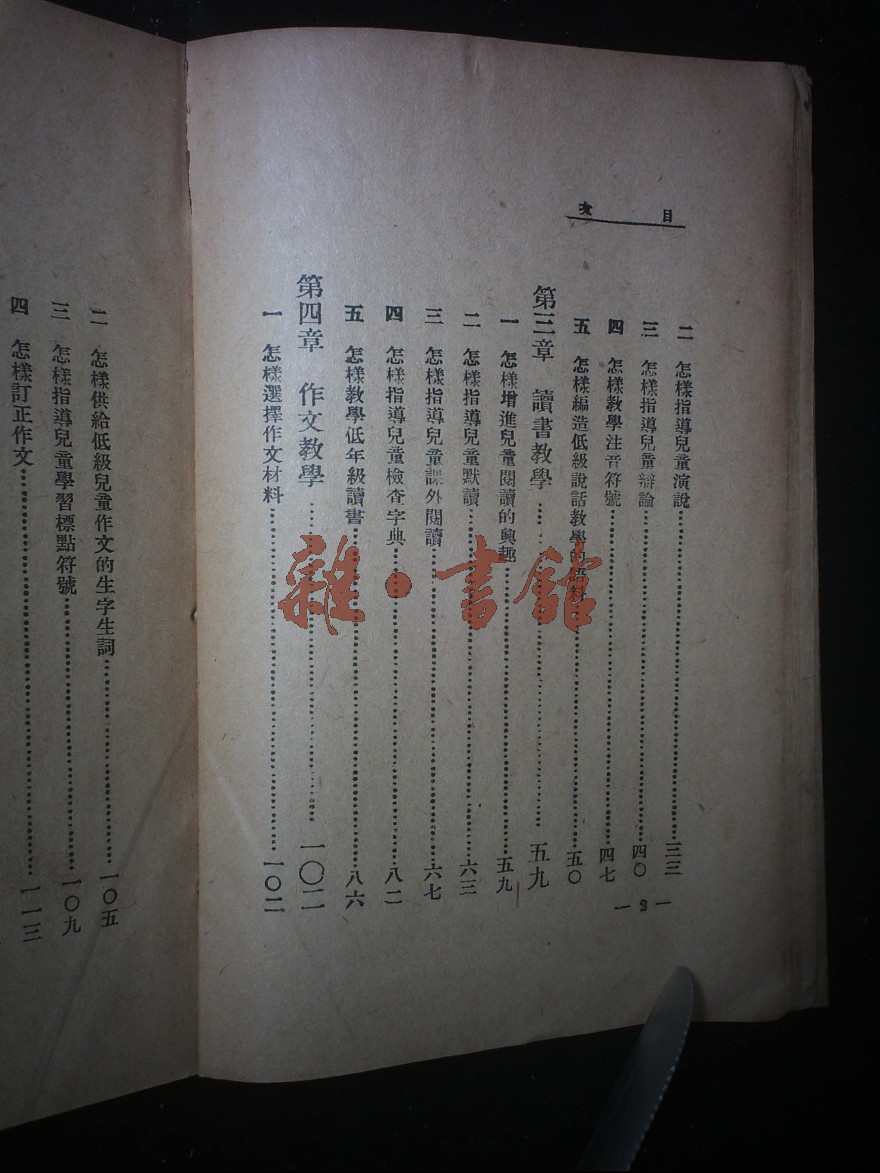 目次
二　怎樣指導兒童演說…………三三
三　怎樣指導兒童辯論…………四〇
四　怎樣教學注音符號…………四七
五　怎樣編造低級說話教學的語料…………五〇
第三章　讀書教學…………五九
一　怎樣增進兒童閱讀的興趣…………五九
二　怎樣指導兒童默讀…………六三
三　怎樣指導兒童課外閱讀…………六七
四　怎樣指導兒童檢查字典…………八二
五　怎樣教學低年級讀書…………八六
第四章　作文教學…………一〇二
一　怎樣選擇作文材料…………一〇二
— 2 —
二　怎樣供給低級兒童作文的生字生詞…………一〇五
三　怎樣指導兒童學習標點符號…………一〇九
四　怎樣訂正作文…………一一三
雜·書館